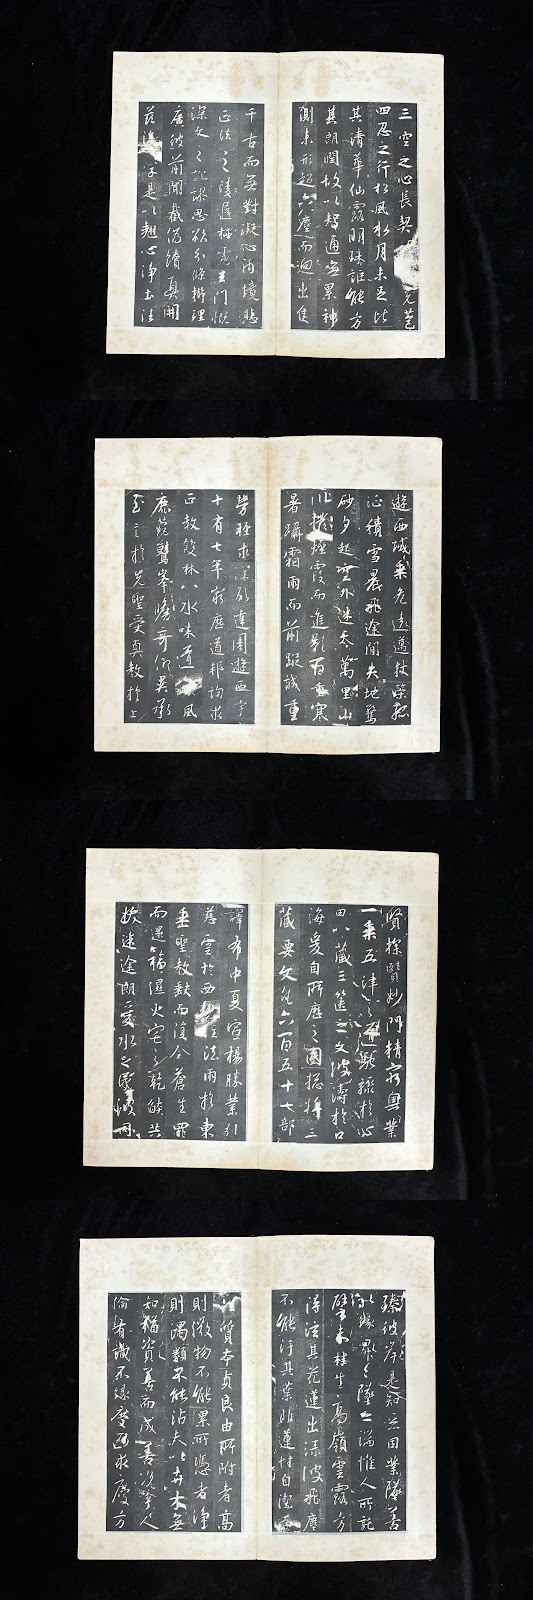 三空之心長契先苞
四忍之行松風水月未足比
其清華仙露明珠詎能方
其朗潤故以智通無累神
測未形超六塵而迥出隻
千古而無對凝心內境悲
正法之陵遲栖慮玄門慨
深文之訛謬思欲分條析理
廣彼前聞截偽續真開
茲學是以翹心淨土法
遊西域乘危遠邁杖策孤
征積雪晨飛途閒失地驚
砂夕起空外迷天萬里山
川撥煙霞而進影百重寒
暑躡霜雨而前蹤誠重
勞輕求深願達周遊西宇
十有七年窮歷道邦詢求
正教雙林八水味道風
鹿菀鷲峯瞻奇仰異承
至言於先聖受真教於上
賢探賾妙門精窮奧業
一乘五律之道馳驟於心
田八藏三篋之文波濤於口
海爰自所歷之國總將三
藏要文凡六百五十七部
譯布中夏宣揚勝業引
慈雲於西極注法雨於東
垂聖教缺而復全蒼生罪
而還福濕火宅之乾焰共
拔迷途朗愛水之昏波同
臻彼岸是知惡因業墜善
以緣昇昇墜之端惟人所託
譬夫桂生高嶺雲露方
得泫其花蓮出淥波飛塵
不能污其葉非蓮性自潔而
桂質本貞良由所附者高
則微物不能累所憑者淨
則濁類不能沾夫以卉木無
知猶資善而成善況乎人
倫有識不緣慶而求慶方